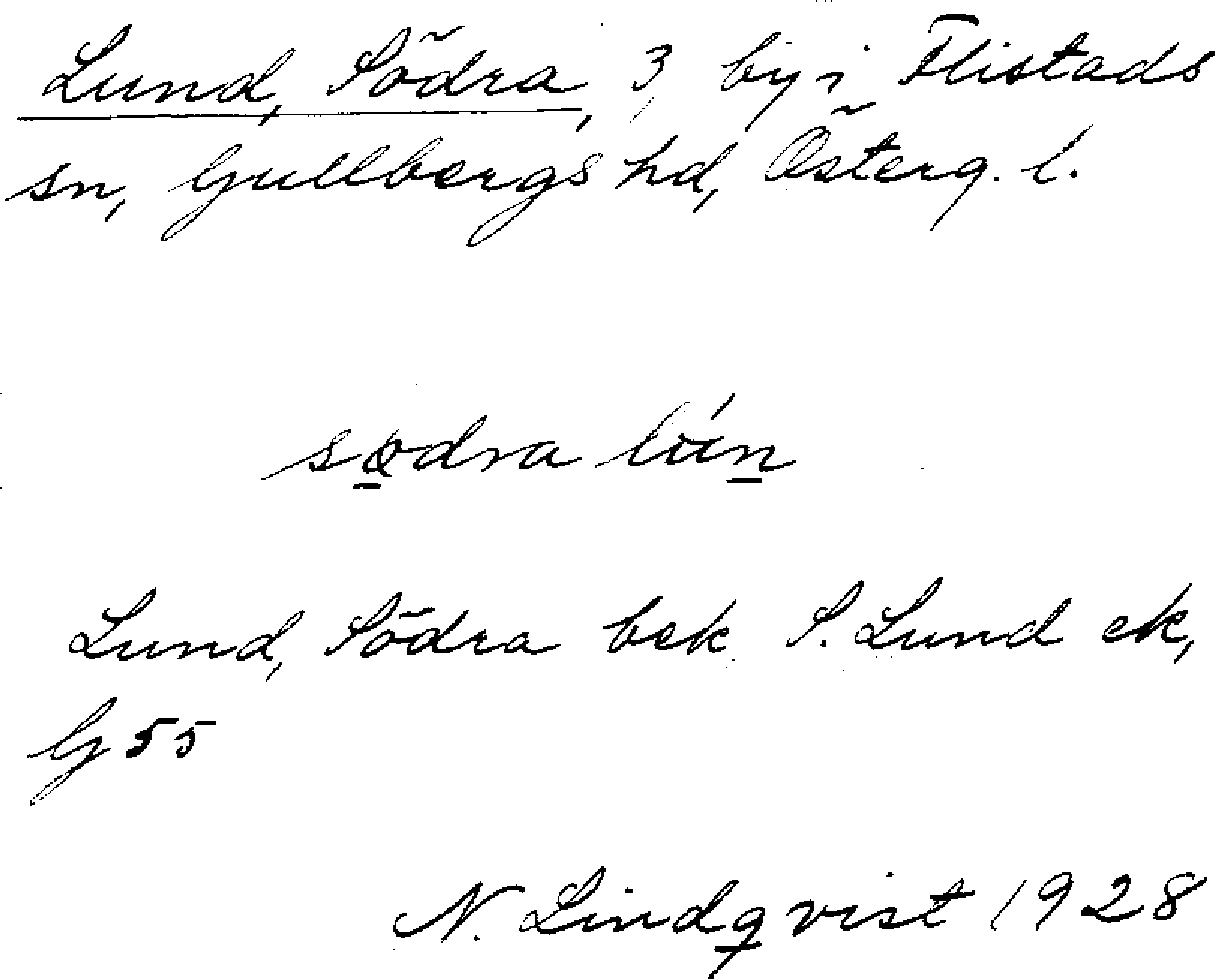 Lund, Södra, 3, by i Flistads
sn, Gullbergs hd, Österg. l.
södra
Lund, Södra bek S. Lund ek,
G 55
N. Lindqvist 1928